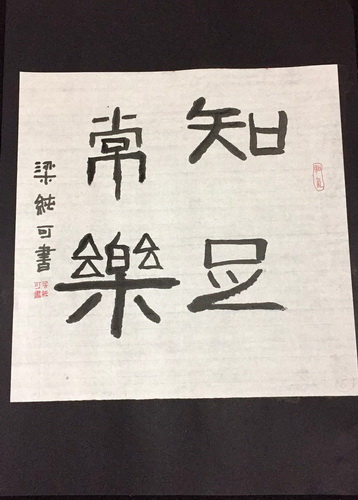 知足
常樂
梁純可書